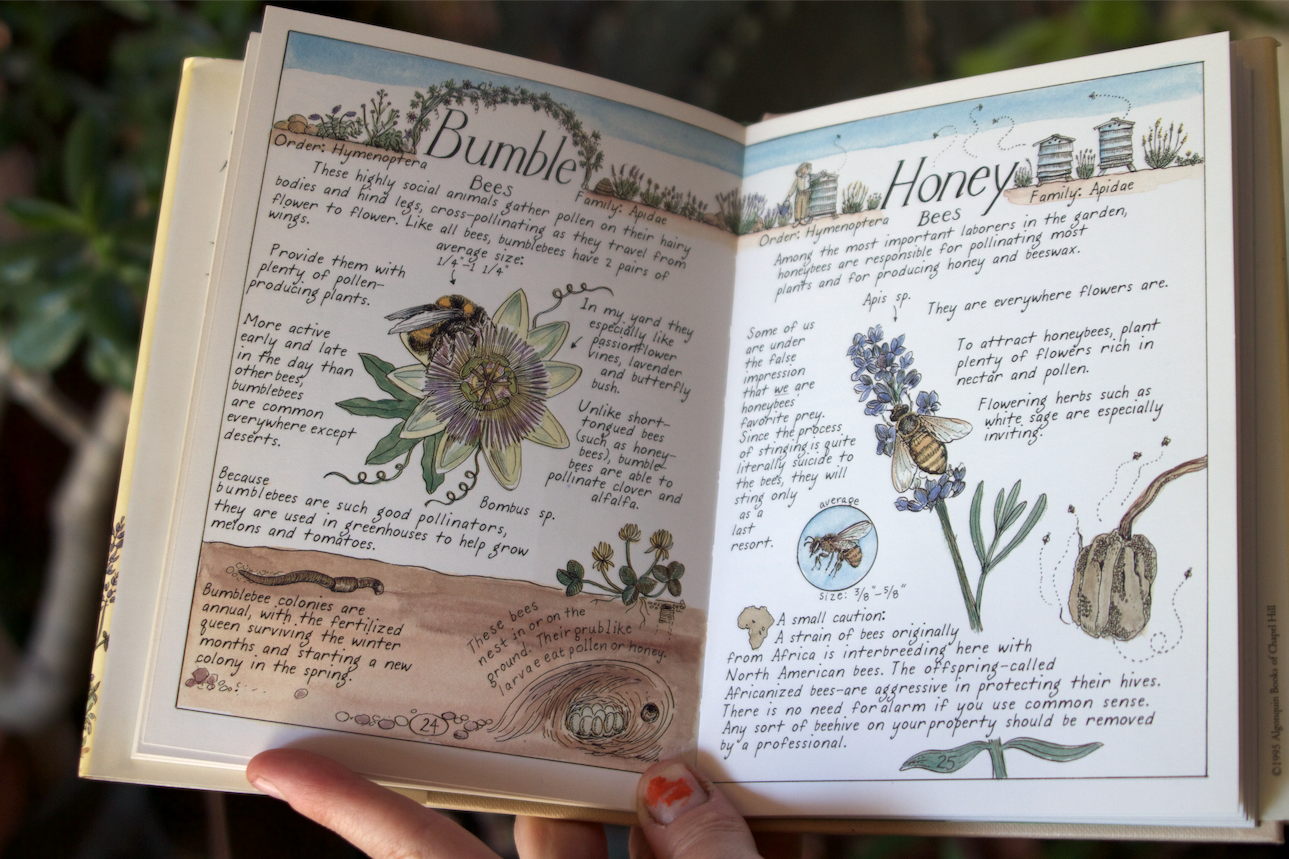 Bumble
Bees
Order: Hymenoptera
Family: Apidae
These highly social animals gather pollen on their hairy
bodies and hind legs, cross-pollinating as they travel from
flower to flower. Like all bees, bumblebees have 2 pairs of
wings.
average size:
1/4"-1 1/4"
Provide them with
plenty of pollen-
producing plants.
More active
early and late
in the day than
other bees,
bumblebees
are common
everywhere except
deserts.
In my yard they
especially like
passionflower
vines, lavender
and butterfly
bush.
Unlike short-
tongued bees
(such as honey-
bees), bumble-
bees are able to
pollinate clover and
alfalfa.
Bombus sp.
Because
bumblebees are such good pollinators,
they are used in greenhouses to help grow
melons and tomatoes.
Bumblebee colonies are
annual, with the fertilized
queen surviving the winter
months and starting a new
colony in the spring.
These bees
nest in or on the
ground. Their grublike
larvae eat pollen or honey.
24
Honey
Bees
Order: Hymenoptera
Family: Apidae
Among the most important laborers in the garden,
honeybees are responsible for pollinating most
plants and for producing honey and beeswax.
Apis sp.
They are everywhere flowers are.
Some of us
are under
the false
impression
that we are
honeybees'
favorite prey.
Since the process
of stinging is quite
literally suicide to
the bees, they will
sting only
as a
last
resort.
To attract honeybees, plant
plenty of flowers rich in
nectar and pollen.
Flowering herbs such as
white sage are especially
inviting.
average
size: 3/8"-5/8"
A small caution:
A strain of bees originally
from Africa is interbreeding here with
North American bees. The offspring-called
Africanized bees-are aggressive in protecting their hives.
There is no need for alarm if you use common sense.
Any sort of beehive on your property should be removed
by a professional.
25
©1995 Algonquin Books of Chapel Hill